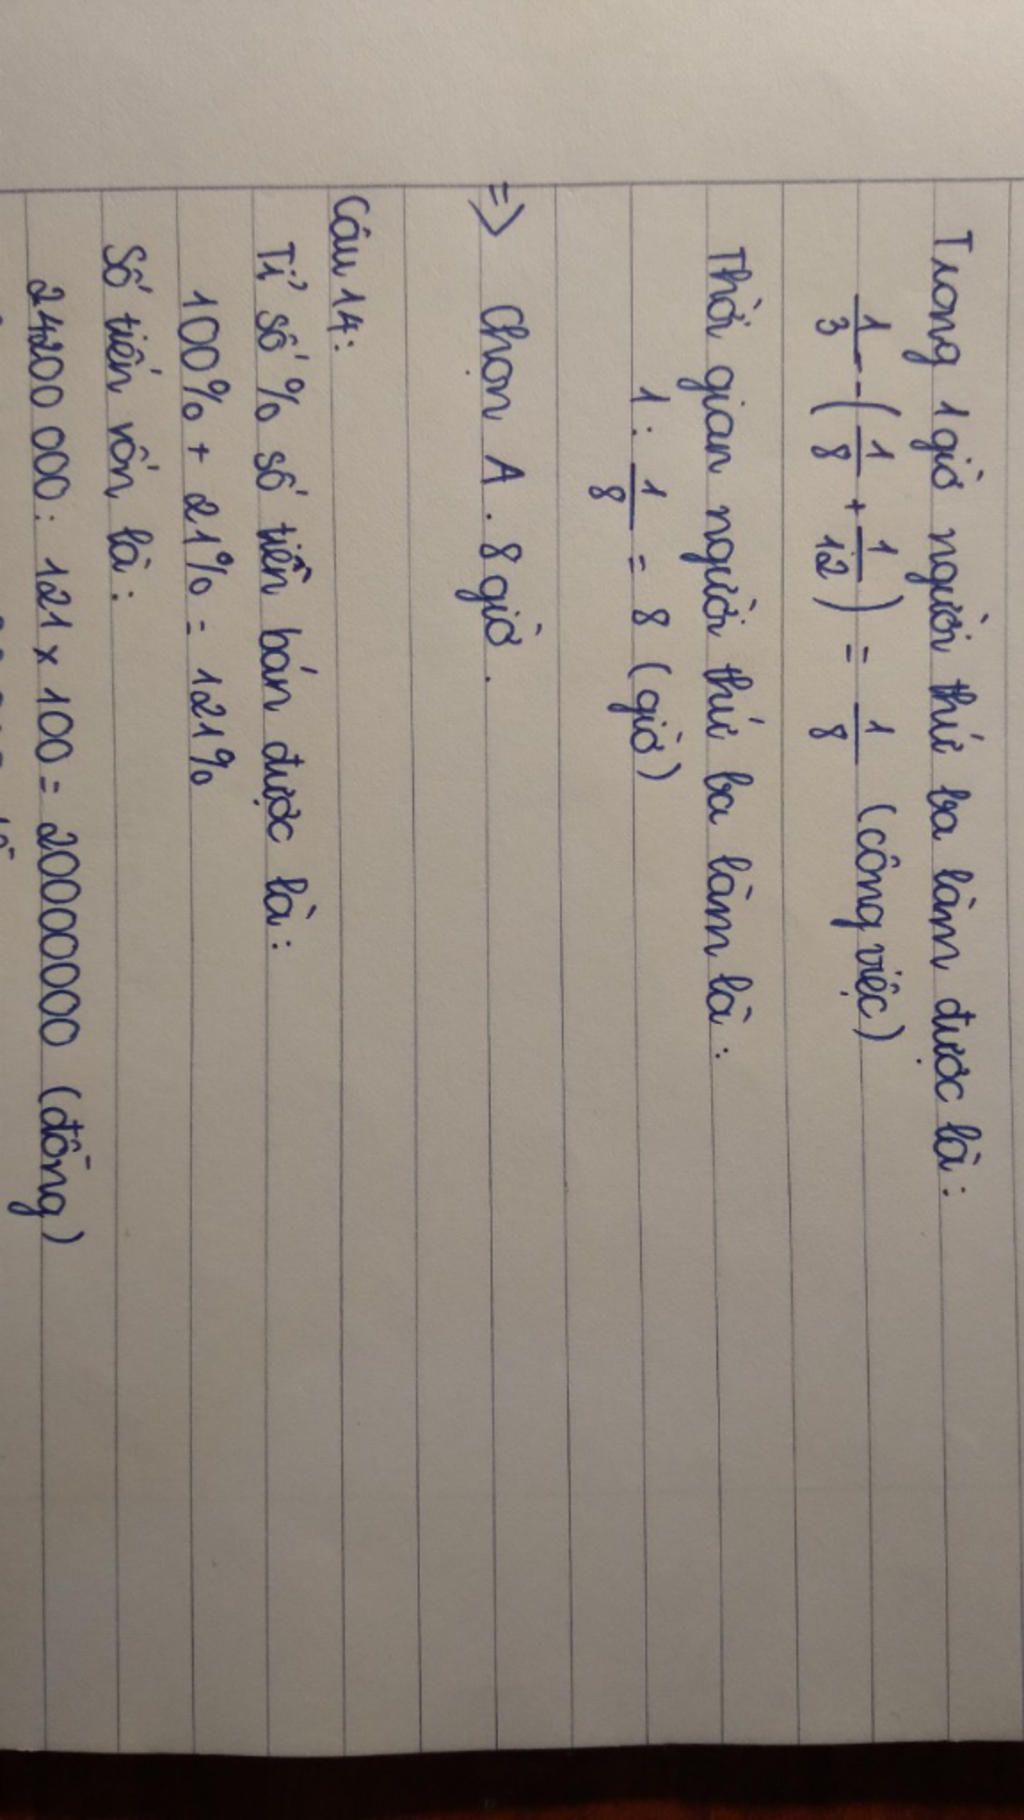 Trong 1 giờ người thứ ba làm được là:
1/3 - (1/8 + 1/12) = 1/8 (công việc)
Thời gian người thứ ba làm là:
1 : 1/8 = 8 (giờ)
=> Chọn A. 8 giờ.
Câu 14:
Tỉ số % số tiền bán được là:
100% + 21% = 121%
Số tiền vốn là:
24200 000 : 121 x 100 = 20000000 (đồng)